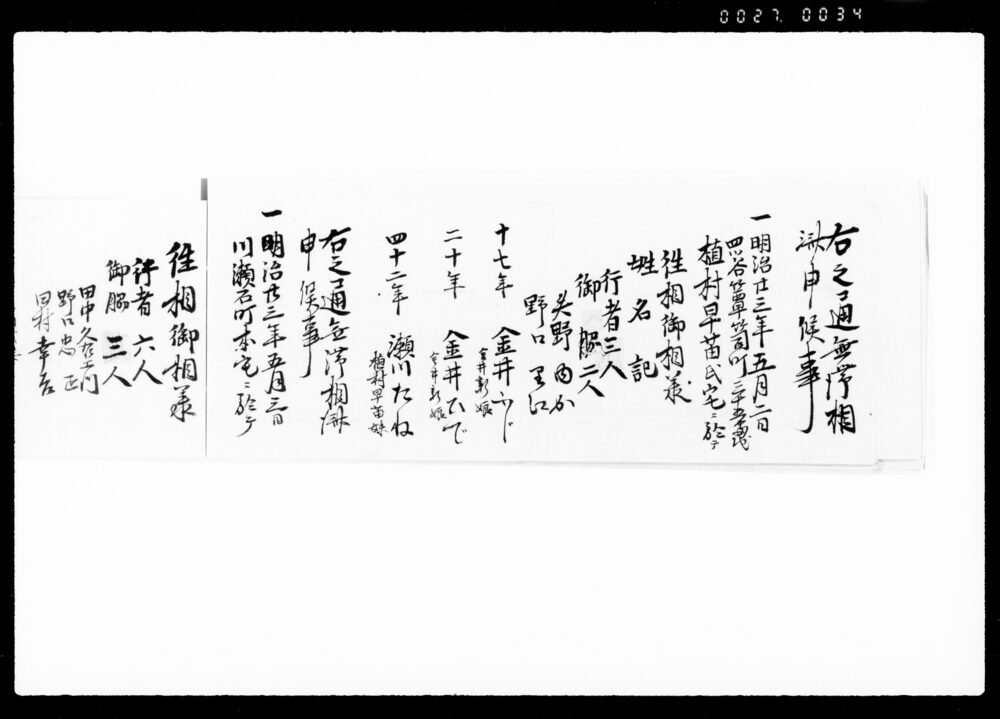 0027. 0034
右之通無滞相
済申候事
一明治廿三年五月二日
四谷簞笥町三十五番
植村早苗氏宅ニ於テ
往相御相義
姓名記
行者三人
御脇二人
野口
十七年 金井ふじ
金井新娘
二十年 金井ひで
金井新娘
四十二年 瀬川たね
植村早苗妹
右之通無滞相済
申候事
一明治廿三年五月三日
川瀬石町本宅ニ於テ
往相御相義
行者六人
御脇三人
田中久右エ門
野口忠正
田村幸吉